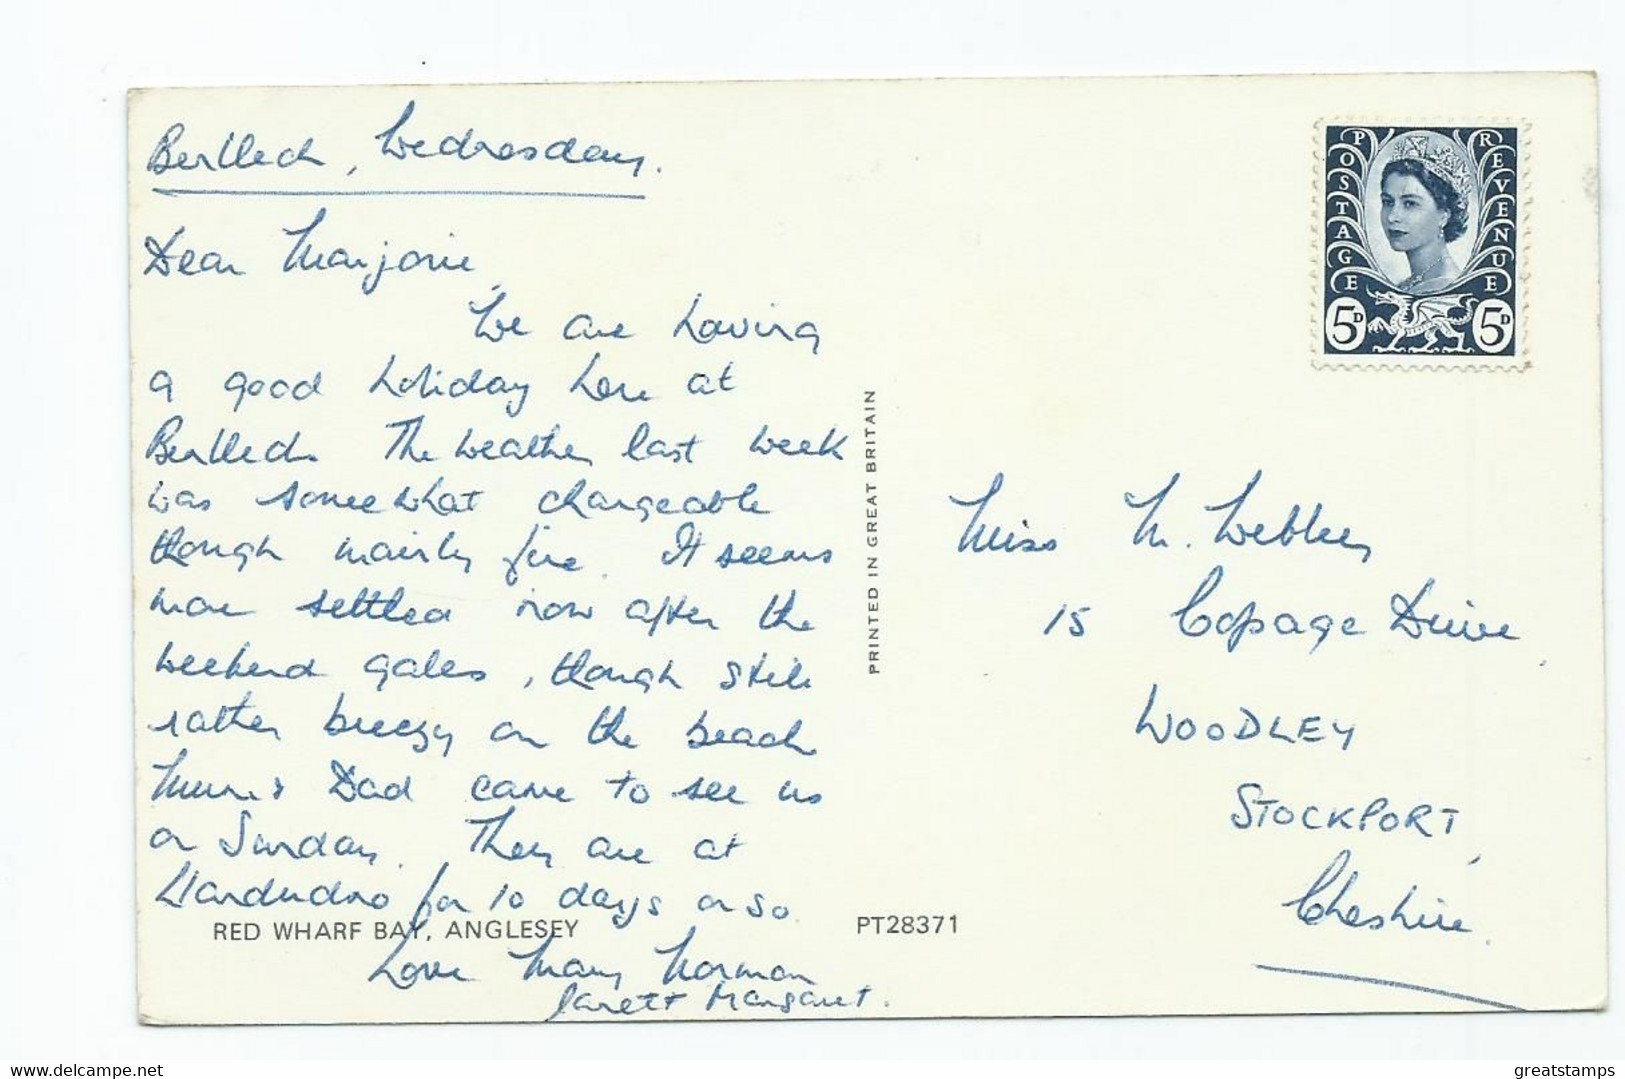 Benllech, Wednesday.
Dear Marjorie,
We are having
a good holiday here at
Benllech. The weather last week
was somewhat changeable
though mainly fine. It seems
more settled now after the
weekend gales, though still
rather breezy on the beach
Mum & Dad came to see us
on Sunday. They are at
Llandudno for 10 days or so.
Love Mary Norman
Janet & Margaret.
RED WHARF BAY, ANGLESEY
PT28371
PRINTED IN GREAT BRITAIN
POSTAGE REVENUE
5D 5D
Miss M. Webley
15 Copage Drive,
WOODLEY
STOCKPORT,
Cheshire.
www.delcampe.net
greatstamps